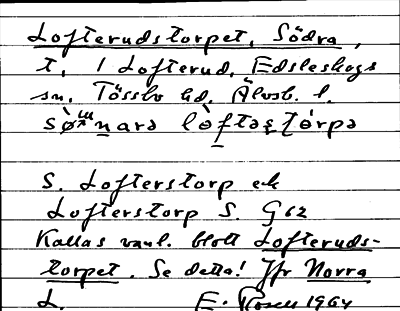 Lofterudstorpet, Södra,
t. i Lofterud, Edsleskogs
sn, Tössbo hd, Älvsb. l.
sø̀nnarə lòftəʂtórpə
S. Lofterstorp ek
Lofterstorp S. G 62
Kallas vanl. blott Lofteruds-
torpet. Se detta! Jfr Norra
L. E. Rosell 1964